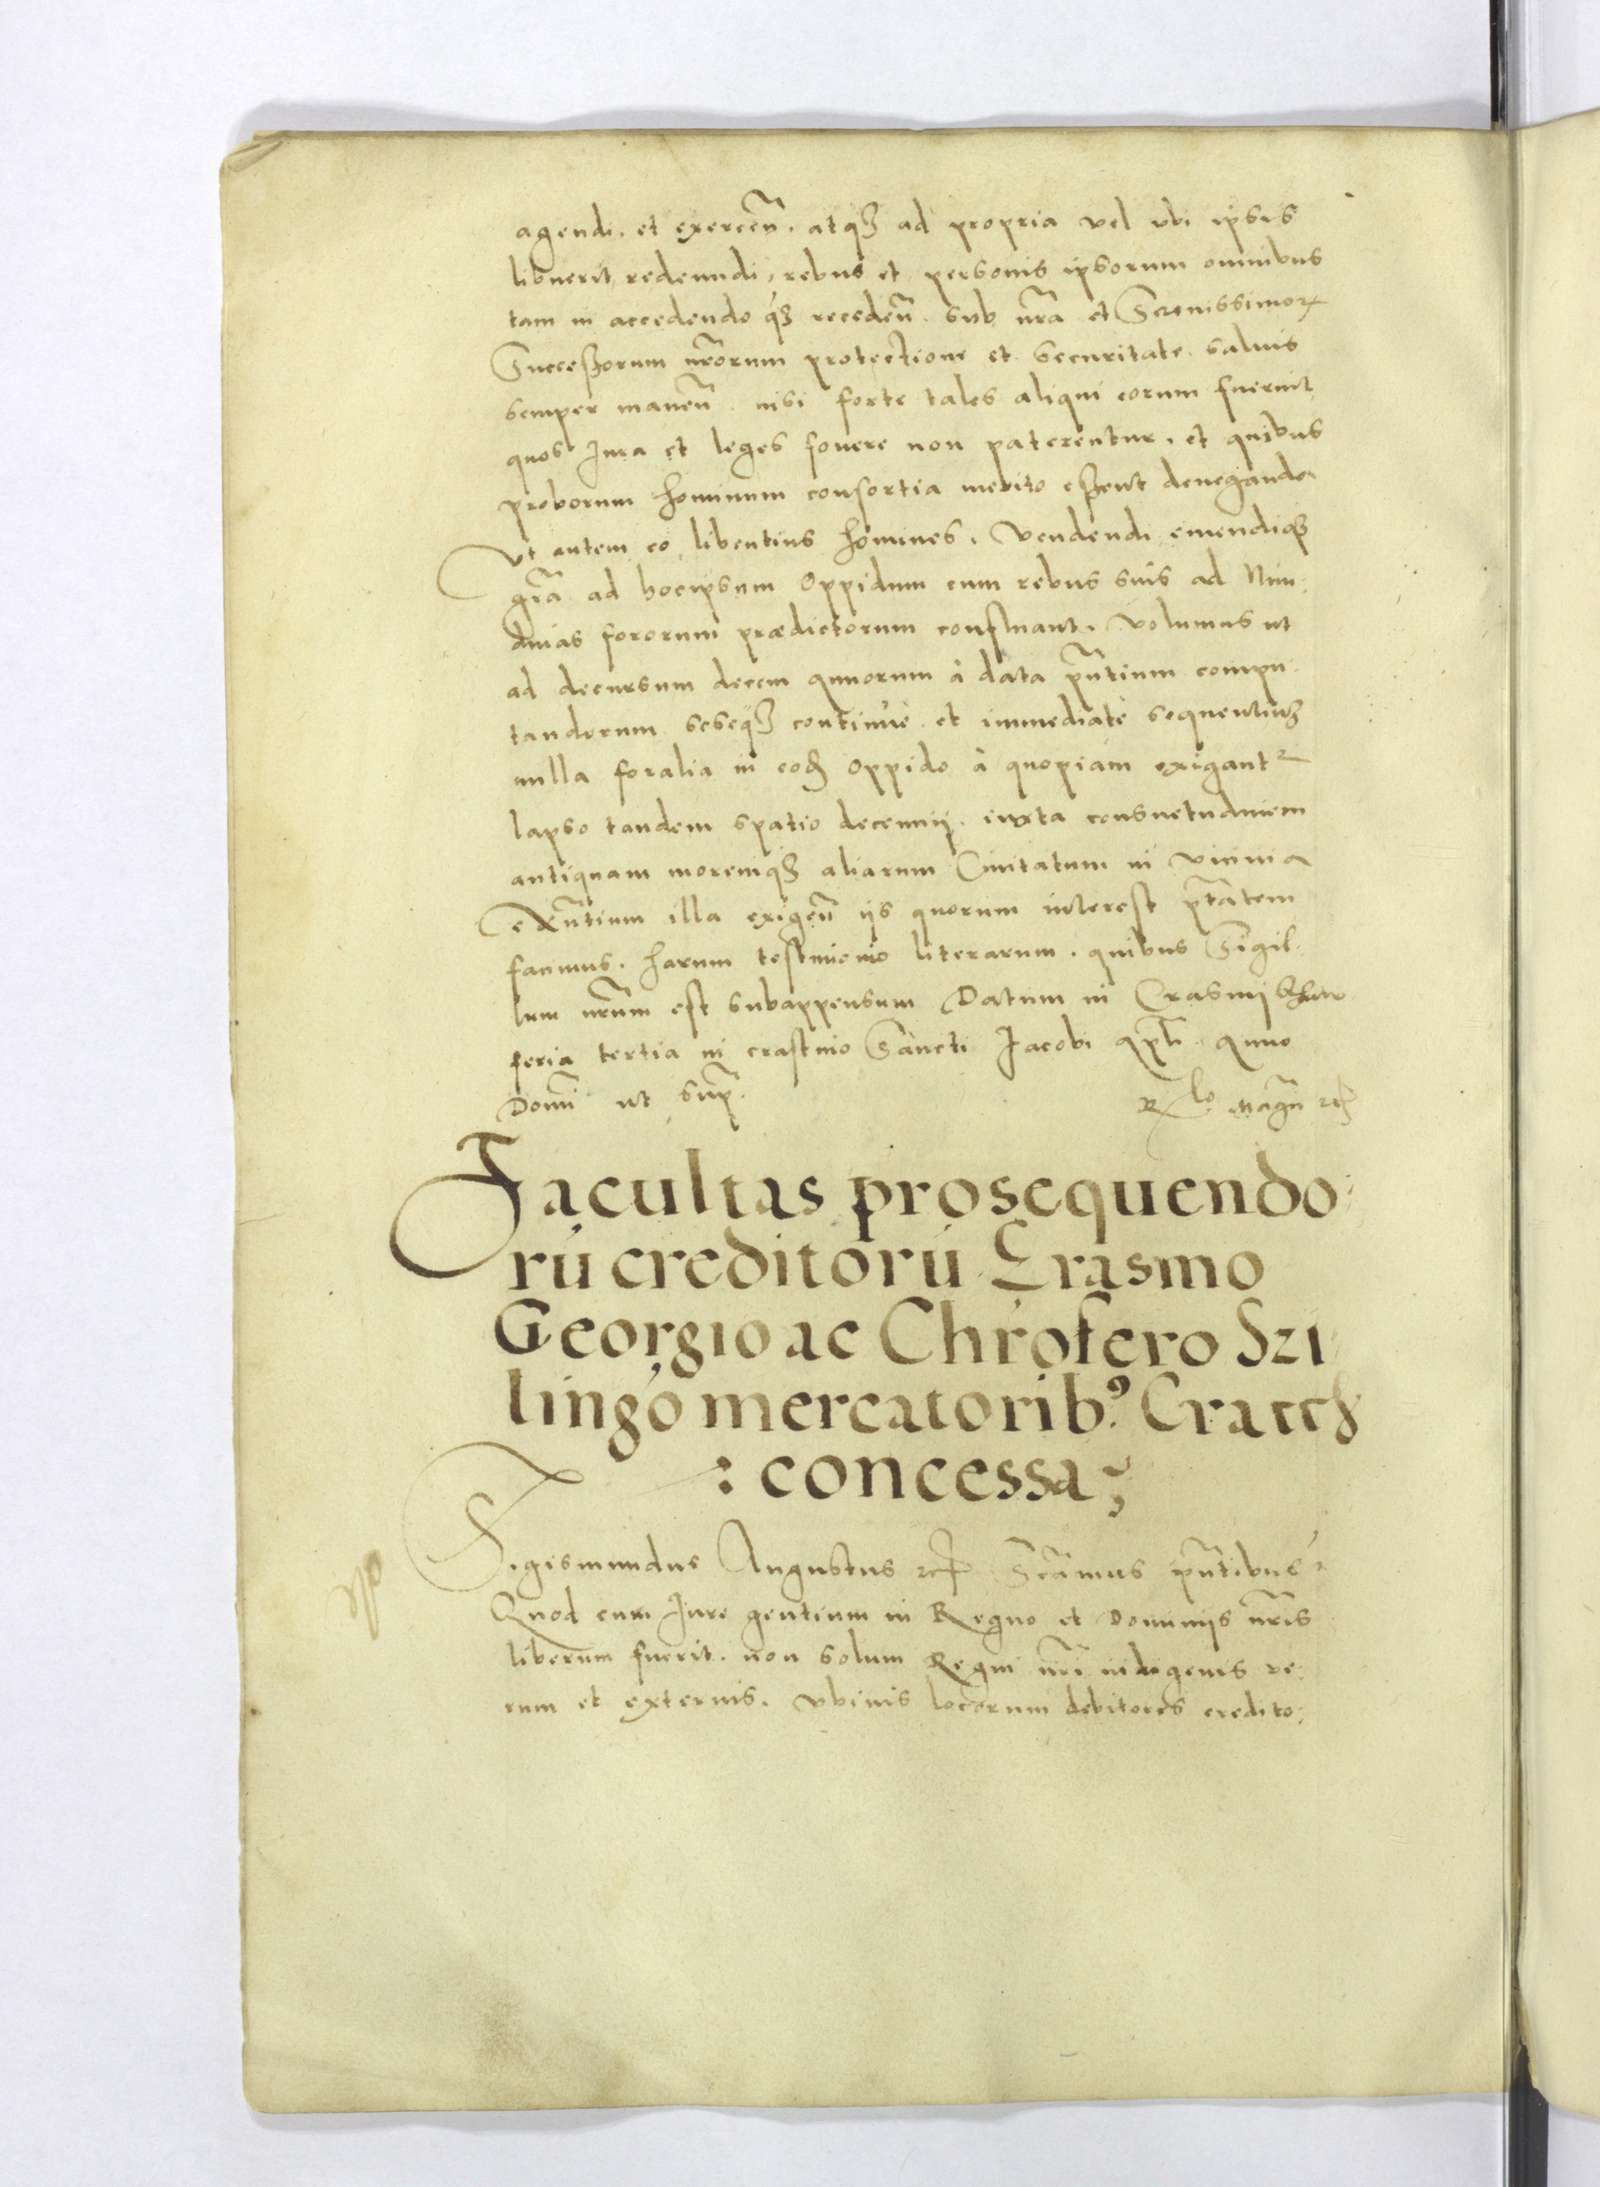 agendi. et exercen̄. atq₃ ad propria vel vbi ipsis
libuerit redeundi, rebus et personis ipsorum omnibus
tam in accedendo q̃₃ recedeñ. sub nr̄a et Serenissimoꝝ
Successorum nr̄orum protectione et securitate. saluis
semper maneñ. nisi forte tales aliqui eorum fuerint
quos Iura et leges fouere non paterentur. et quibus
proborum hominum consortia merito essent deneganda.
Vt autem eo libentius homines. Vendendi emendiq₃
gr̄a ad hocipsum Oppidum cum rebus suis ad Nun-
dinas fororum prædictorum confluant. Volumus ut
ad decursum decem annorum à data pn̄tium compu-
tandorum seseq₃ continuè et immediatè sequentiu₃
nulla foralia in eod₃ Oppido à quopiam exigantr
lapso tandem spatio decennij. iuxta consuetudinem
antiquam moremq₃ aliarum Ciuitatum in vicinia
exn̄tium illa exigen̄ ijs quorum interest pt̄atem
facimus. harum testimonio literarum. quibus Sigil-
lum nr̄um est subappensum Datum in
feria tertia in crastino Sancti Jacobi apl̄i Anno
Domī ut sup̄.
R̄ lo Magn̄
Facultas prosequendo-
rū creditorū Erasmo
Georgio ac Chrōfero Szi-
lingo mercatorib⁹ Cracc̄
: concessa;
Sigismundus Augustus rc̄ Scīamus pn̄tibus
Quod cum Jure gentium in Regno et Dominijs nr̄is
liberum fuerit. non solum Regni nr̄i indigenis ve-
rum et externis. vbiuis locorum debitores credito-